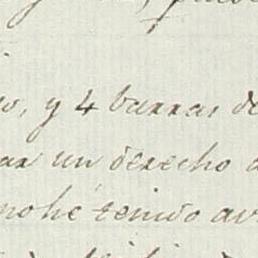 y 4 burras de
ar un derecho
no he tenido av